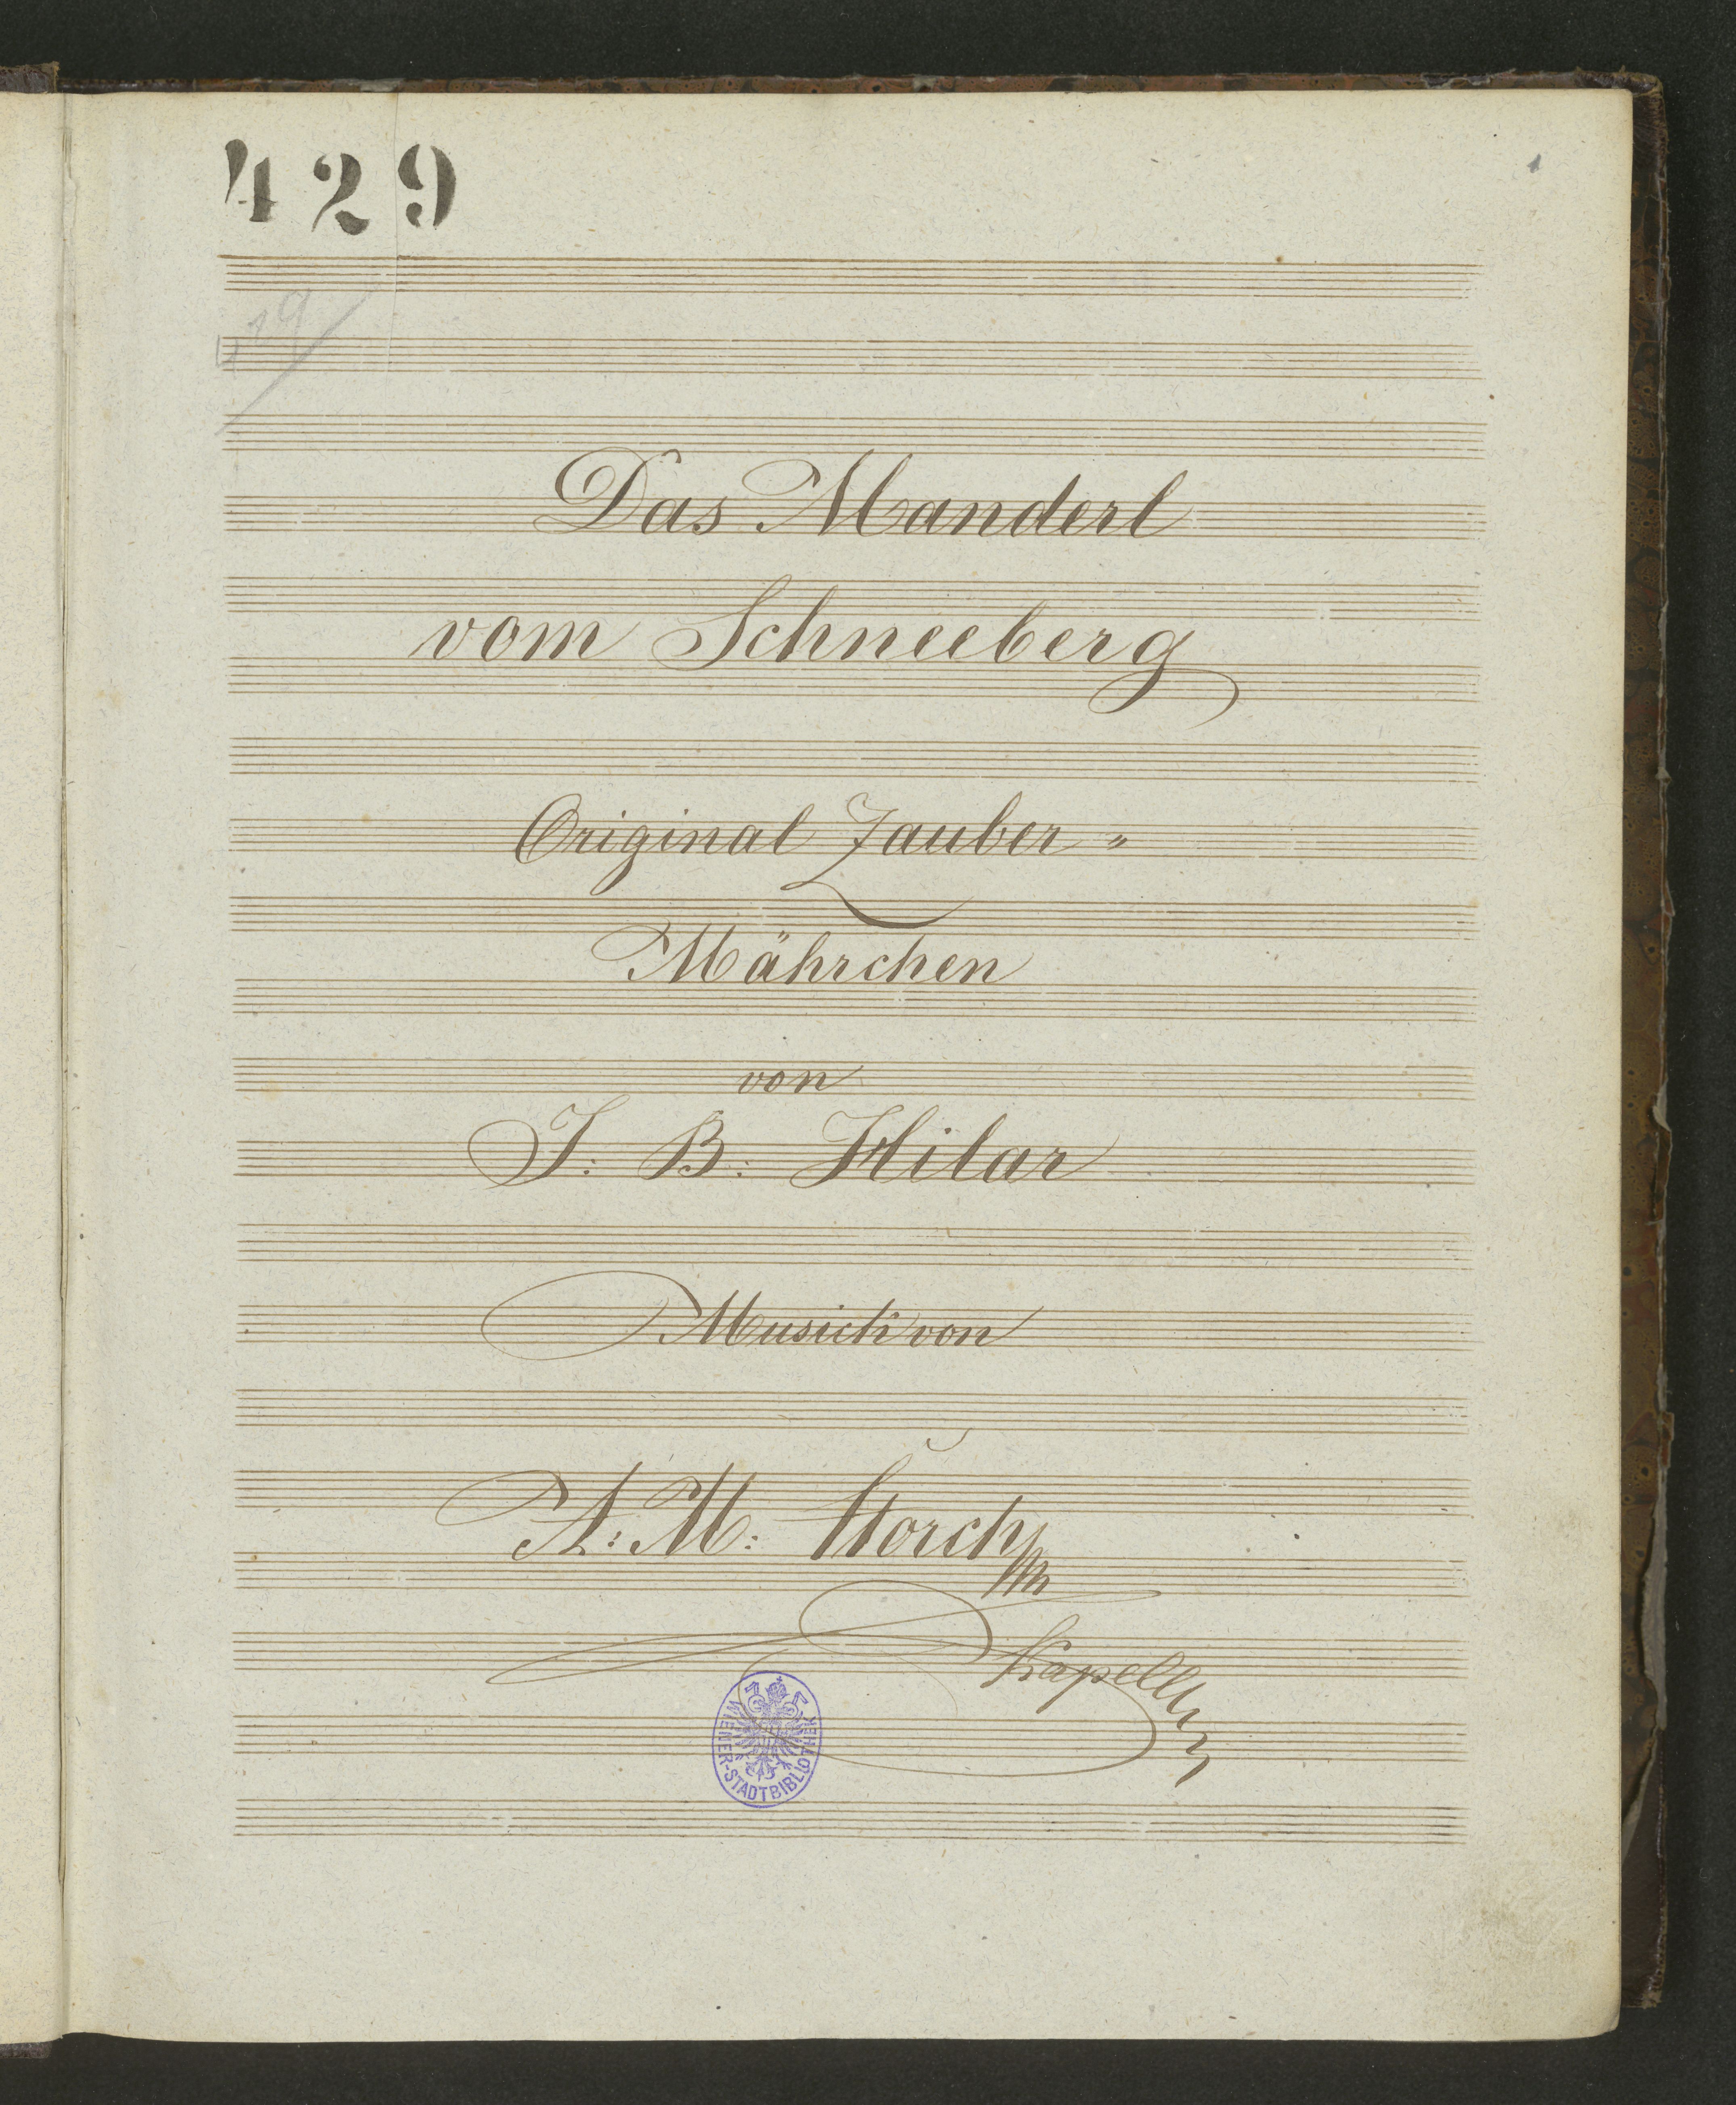 429
1
19
Das Manderl
vom Schneeberg
Original Zauber "
Mährchen
von
J: B: Hilar
Musick von
A: M: Storch
WIENER-STADTBIBLIOTHEK